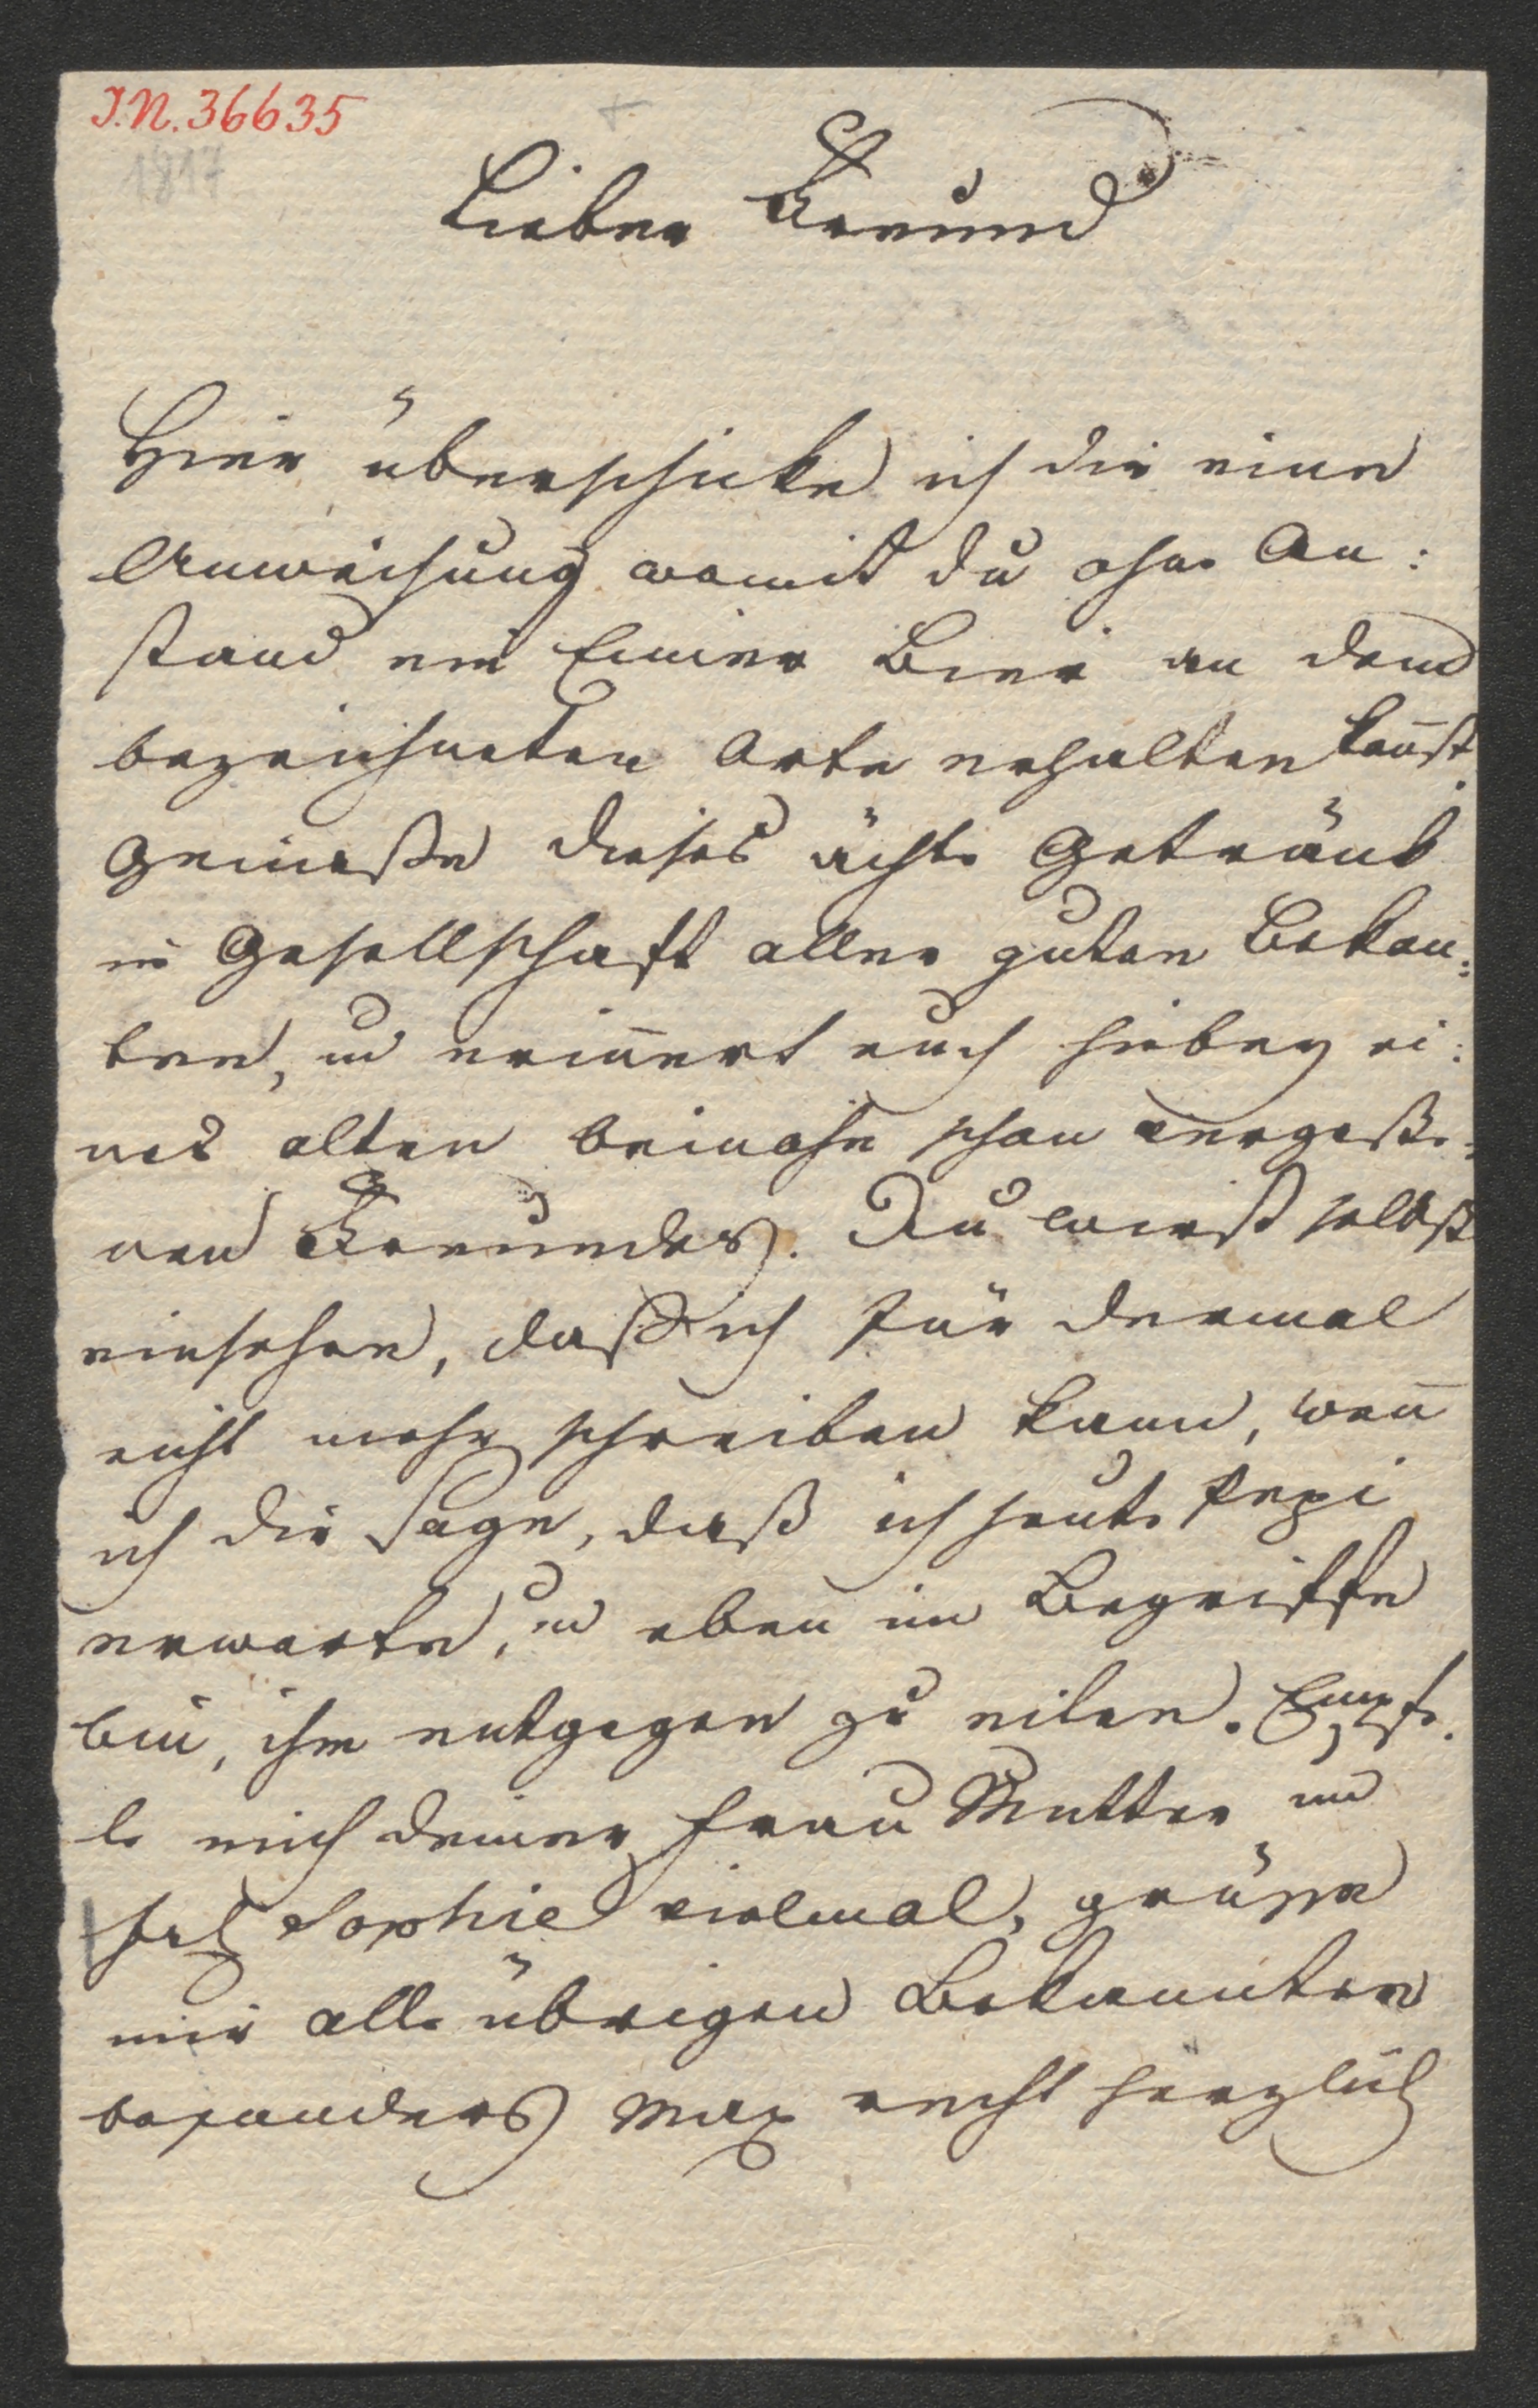 J.N. 36635
1817
Lieber Freund
Hier überschicke ich dir eine
Anweisung womit du ohne An:
stand ein Eimer Bier an dem
bezeichneten Orte erhalten kañst.
Genieße dieses ächte Getränk
in Gesellschaft aller guten Bekan̄:
ten, und erin̄ert euch hiebey ei:
nes alten beinahe schon vergeße:
nen Freundes. Du wirst selbst
einsehen, daß ich für dermal
nicht mehr schreiben kann, wen̄
ich dir sage, daß ich heute Pepi
erwarte, und eben im Begriffe
bin, ihm entgegen zu eilen. Empfe.
le mich deiner Frau Mutter und
Frl Sophie vielmal, grüsse
mir alle übrigen Bekannten
besonders Max recht herzlich